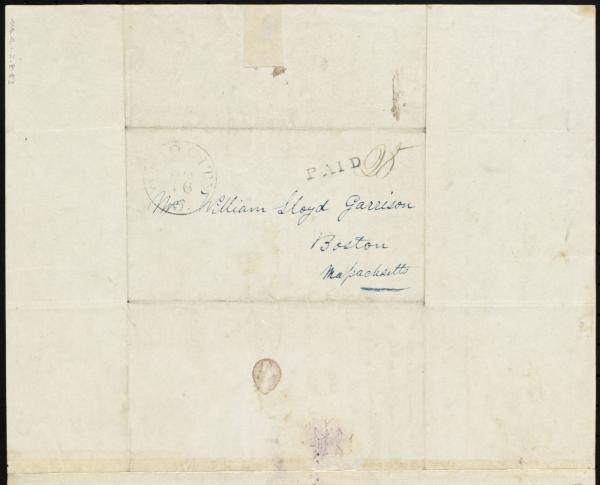 PAID 25
Mr. William Lloyd Garrison
Boston
Massachsetts